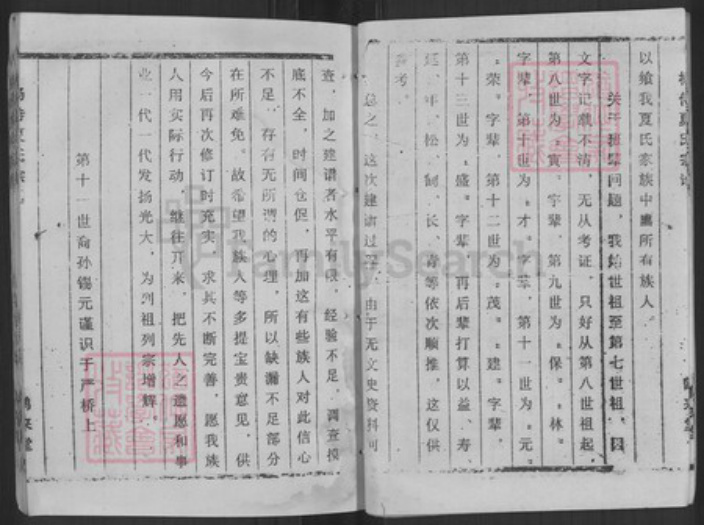 以飨我夏氏家族中所有族人。
关于辈问题，我始世祖至第七世祖，因
文字记载不清，无从考证，只好从第八世祖起，
第八世为"寅"字辈、第九世为"保"、"林"
字辈、第十世为"才"字辈、第十一世为"元"、
"荣"字辈、第十二世为"茂"、"建"字辈，
第十三世为"盛"字辈，再后辈打算以益、寿、
延、年、松、长、青等依次顺推，这仅供
参考。
总之，这次建谱过程，由于无文史资料可
查，加之建谱者水平有限，经验不足，调查摸
底不全，时间仓促，再加这有些族人对此信心
不足，存有无所谓的心理，所以缺漏不足部分
在所难免。故希望我族人等多提宝贵意见，供
今后再次修订时充实，求其不断完善，愿我族
人用实际行动，继往开来，把先人之遗愿和事
业一代一代发扬光大，为列祖列宗增辉。
第十一世向孙锡元谨识于严桥上
FamilySearch